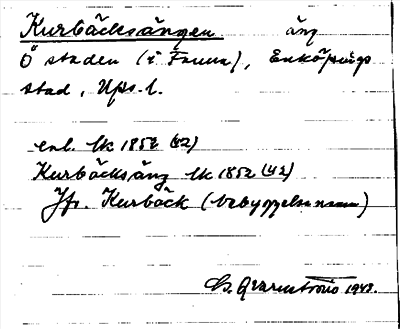 Kurbäcksängen äng
Ö staden (i Fanna), Enköpings
stad, Ups. l.
enl. lk 1852 (42)
Kurbäcksäng lk 1852 (42)
Jfr. Kurbäck (bebyggelsenamn)
G. Qvarnström 1948.